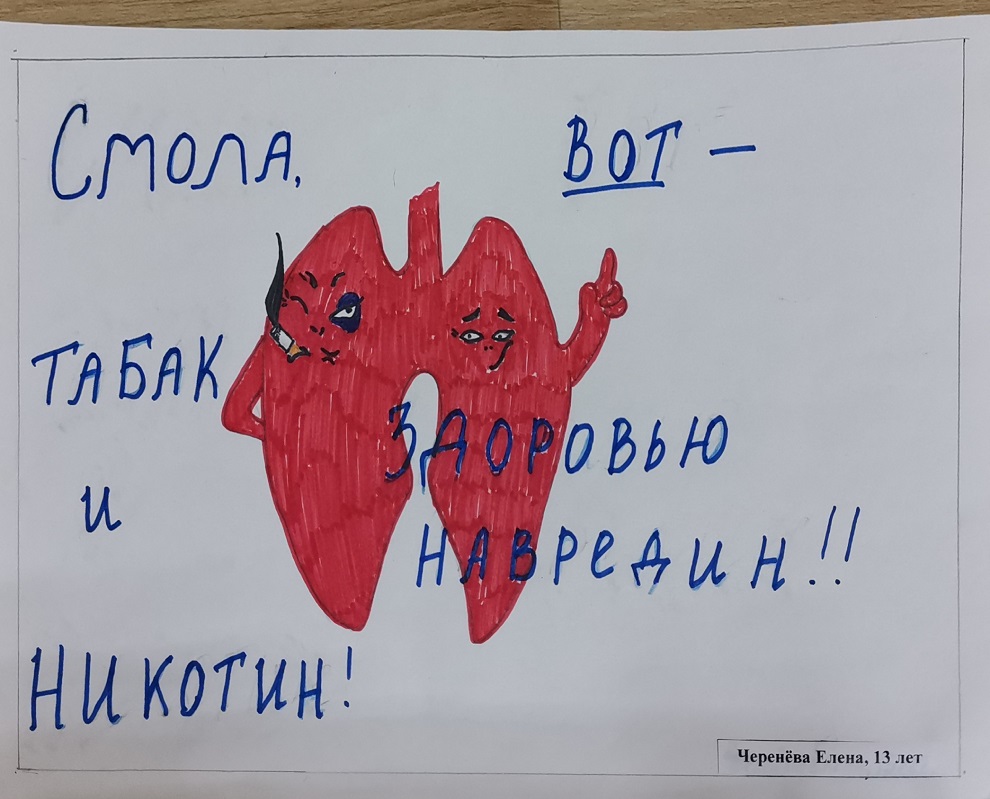 Смола,
ТАБАК
и
НИКОТИН!
ВОТ –
ЗДОРОВЬЮ
НАВРЕДИН!!
Черенёва Елена, 13 лет